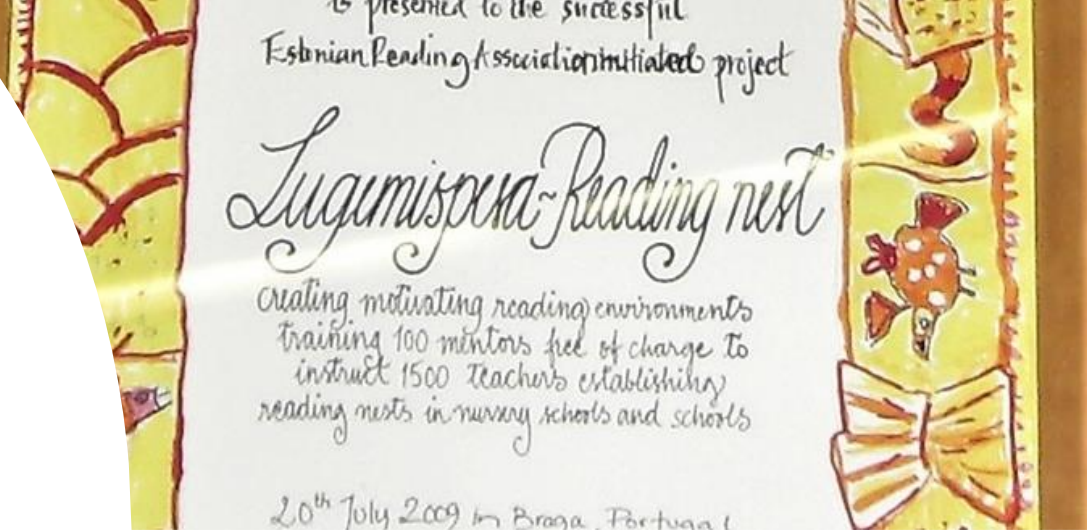 is presented to the successful
Estonian Reading Association initiated project
Lugemispesa-Reading nest
creating motivating reading environments
training 100 mentors free of charge to
instruct 1500 teachers establishing
reading nests in nursery schools and schools
20th July 2009 in Braga, Portugal